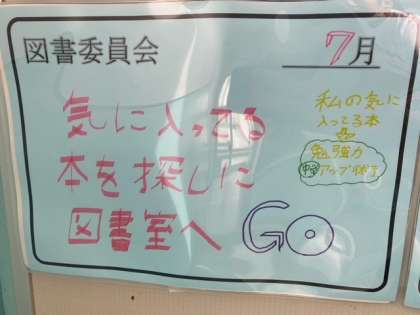 図書委員会
7月
気に入ってる
本を探しに
図書室へ GO
私の気に
入ってる本
勉強力
アップ